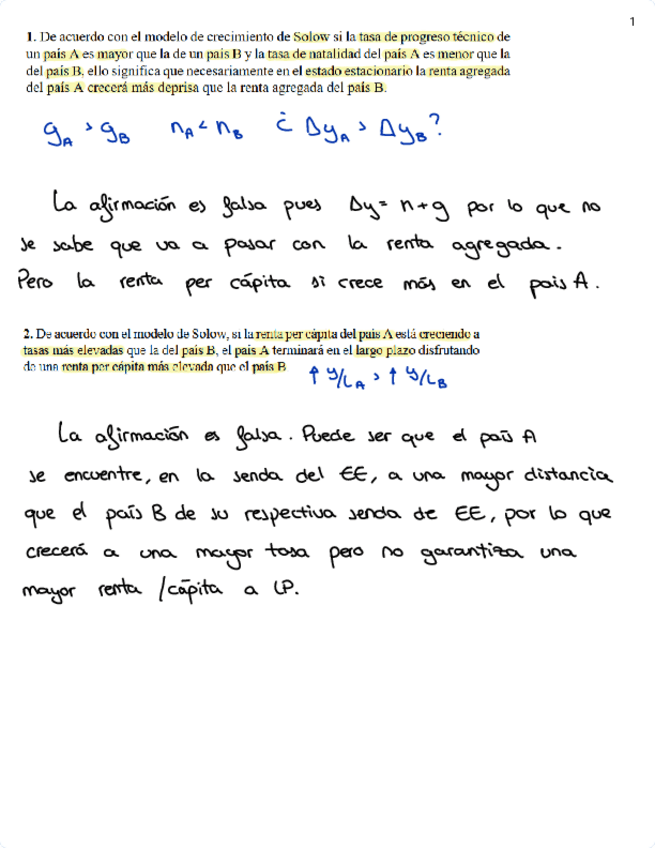 1
1. De acuerdo con el modelo de crecimiento de Solow si la tasa de progreso técnico de
un país A es mayor que la de un país B y la tasa de natalidad del país A es menor que la
del país B, ello significa que necesariamente en el estado estacionario la renta agregada
del país A crecerá más deprisa que la renta agregada del país B.
g_A > g_B n_A < n_B ¿ Δy_A > Δy_B?
La afirmación es falsa pues Δy = n + g por lo que no
se sabe que va a pasar con la renta agregada.
Pero la renta per cápita si crece más en el pais A.
2. De acuerdo con el modelo de Solow, si la renta per cápita del país A está creciendo a
tasas más elevadas que la del país B, el país A terminará en el largo plazo disfrutando
de una renta per cápita más elevada que el país B
↑ y/L_A > ↑ y/L_B
La afirmación es falsa. Puede ser que el país A
se encuentre, en la senda del EE, a una mayor distancia
que el país B de su respectiva senda de EE, por lo que
crecerá a una mayor tasa pero no garantiza una
mayor renta /cápita a LP.